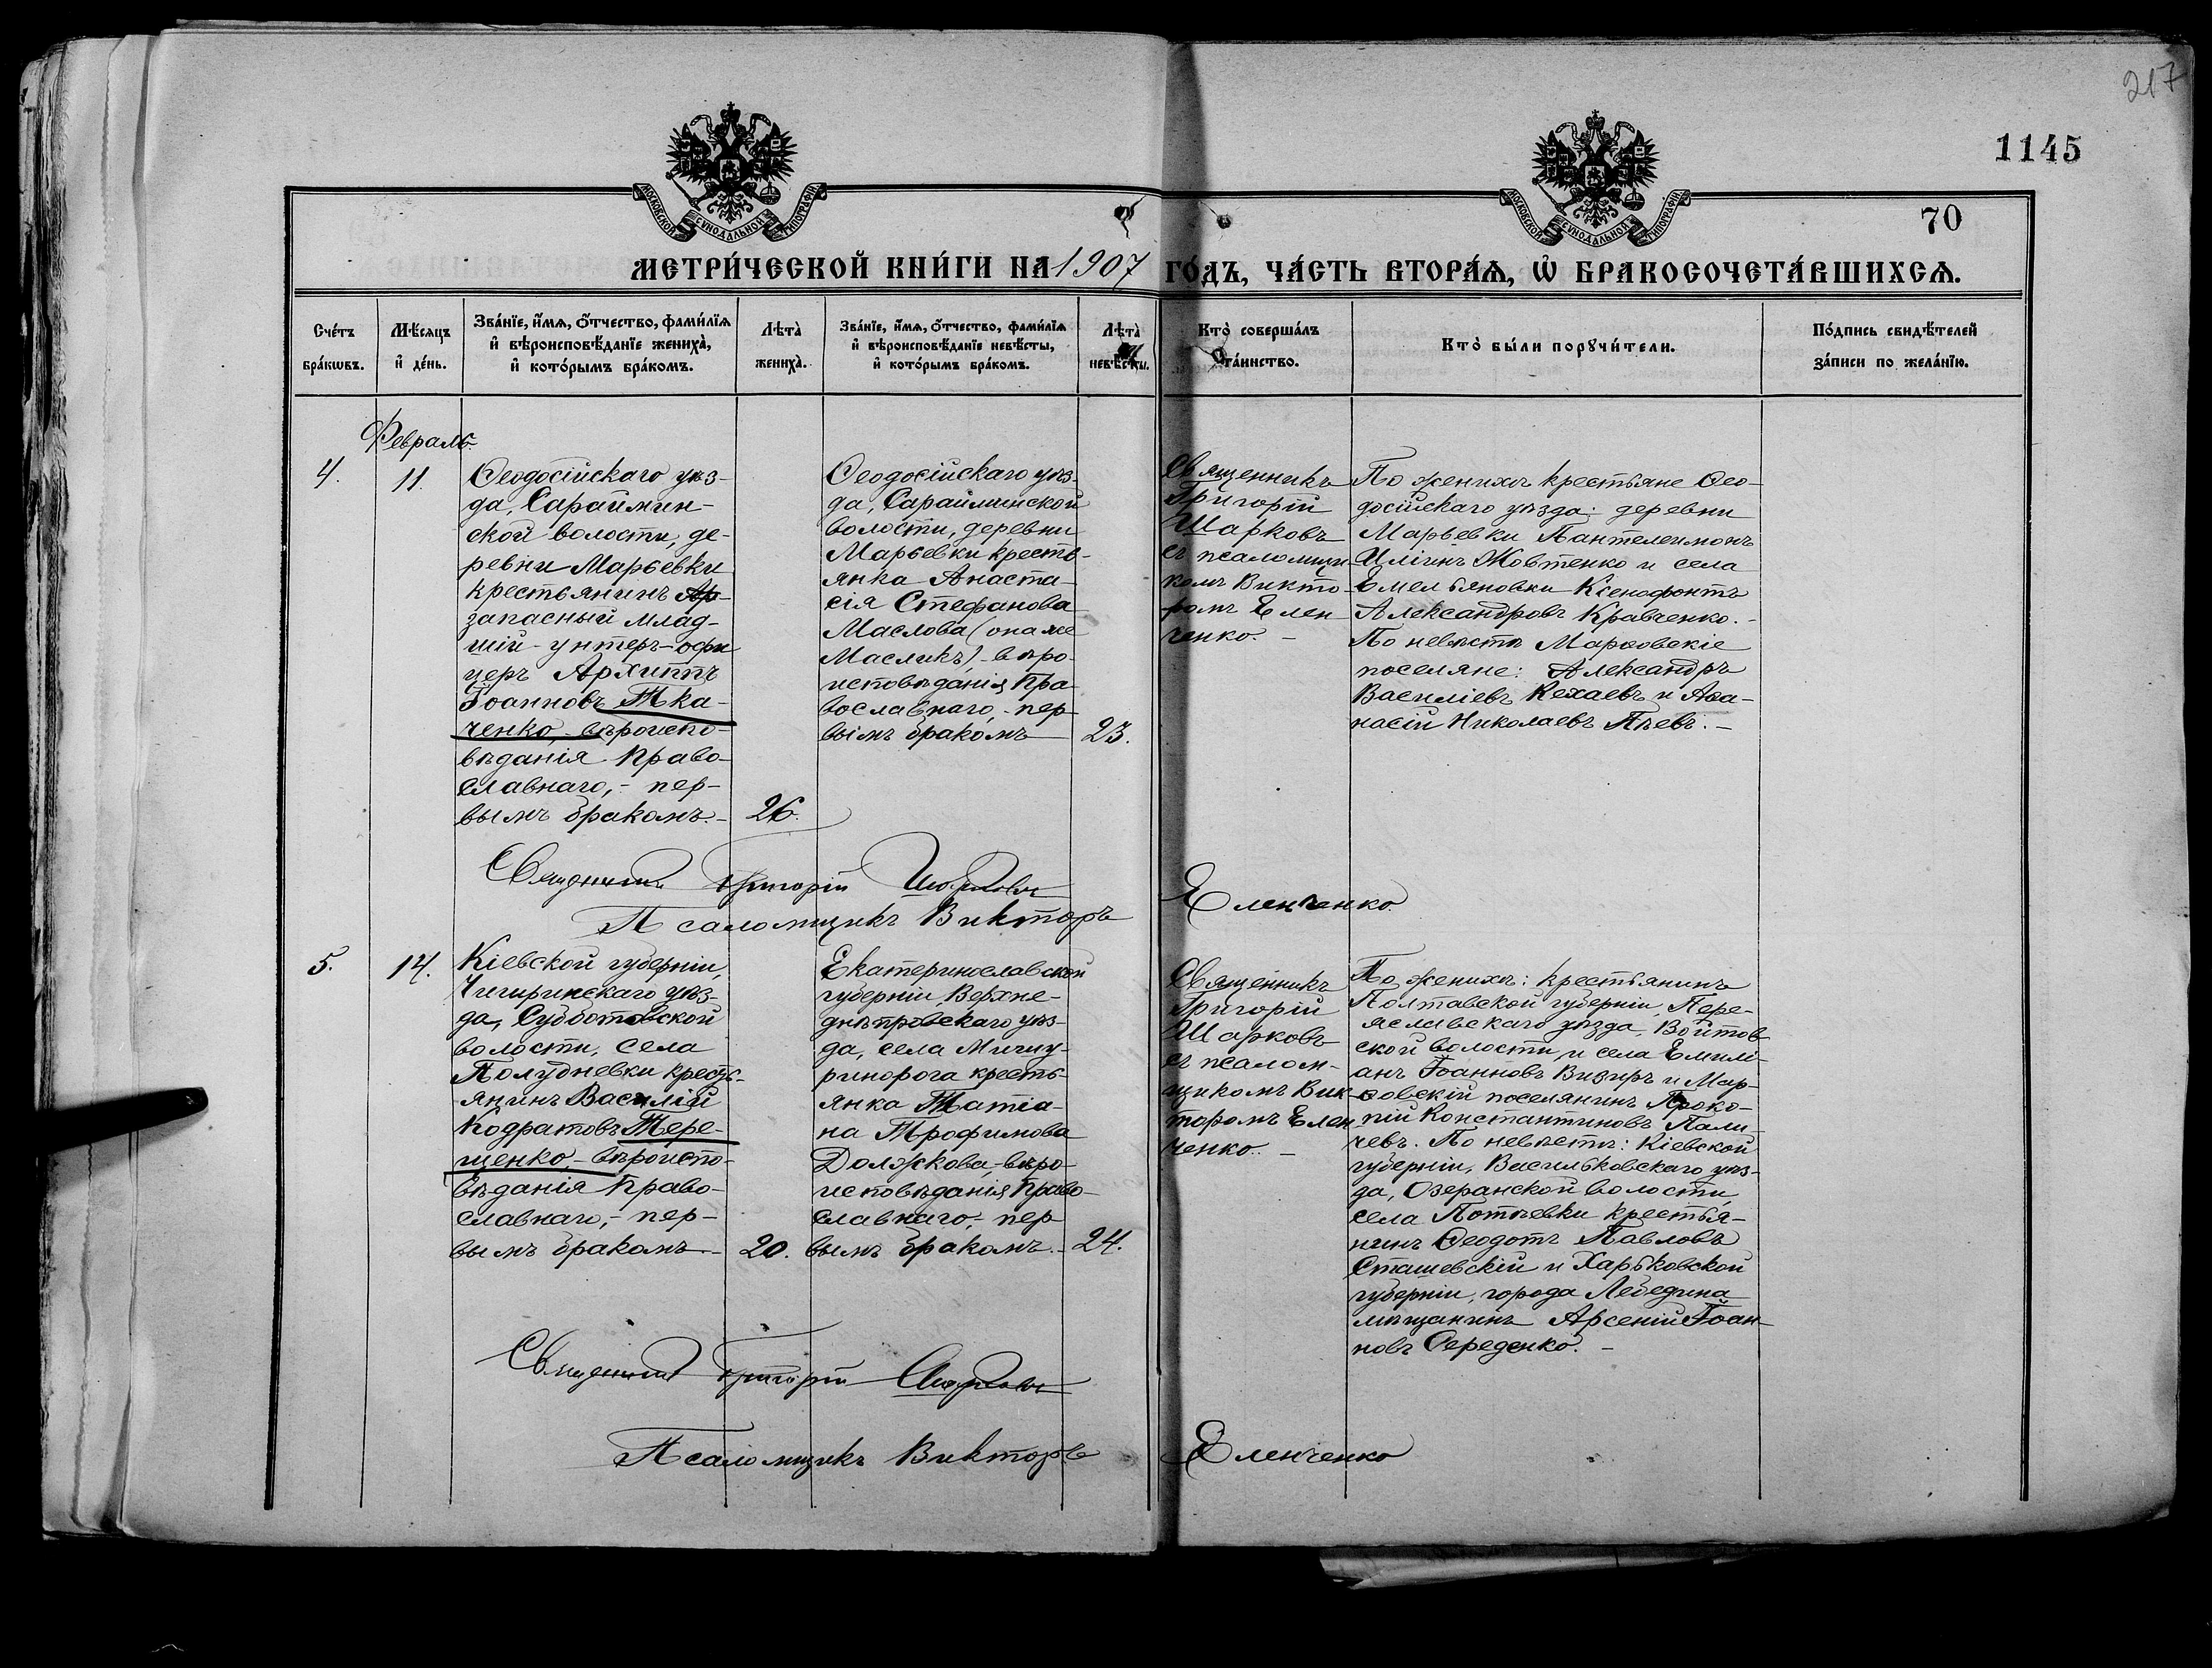 217
1145
70
МОСКОВСКОЙ СУНОДАЛЬНОЙ ТИПОГРАФІИ
МОСКОВСКОЙ СУНОДАЛЬНОЙ ТИПОГРАФІИ
МЕТРИ́ЧЕСКОЙ КНИ́ГИ НА 1907 ГО́ДЪ, ЧА́СТЬ ВТОРА́Ѧ, Ѽ БРАКОСОЧЕТА́ВШИХСѦ.
Сче́тъ
бра́кѡвъ.
Мѣ́сѧцъ
и҆ де́нь.
Зва́нїе, и҆́мѧ, ѻ҆́тчество, фами́лїѧ
и҆ вѣроисповѣ́данїе жениха̀,
и҆ кото́рымъ бра́комъ.
Лѣта̀
жениха̀.
Зва́нїе, и҆́мѧ, ѻ҆́тчество, фами́лїѧ
и҆ вѣроисповѣ́данїе невѣ́сты,
и҆ кото́рымъ бра́комъ.
Лѣта̀
невѣ́сты.
Кто̀ соверша́лъ
та́инство.
Кто̀ бы́ли порꙋчи́тели.
По́дпись свидѣ́телей
за́писи по жела́нїю.
Февраль.
4.
11.
Ѳеодосійскаго уѣз-
да, Сараймин-
ской волости, де-
ревни Марьевки
крестьянинъ Ар-
запасный млад-
шій унтеръ-офи
церъ Архиппъ
Іоанновъ Тка-
ченко, вѣроиспо-
вѣданія Право-
славнаго, - пер-
вымъ бракомъ. -
26.
Ѳеодосійскаго уѣз-
да, Сарайминской
волости, деревни
Марьевки кресть-
янка Анаста-
сія Стефанова
Маслова (она же
Масликъ) - вѣро-
исповѣданія Пра-
вославнаго, - пер-
вымъ бракомъ
23.
Священникъ
Григорій
Шарковъ
съ псаломщи-
комъ Викто-
ромъ Елен-
ченко. -
По женихѣ крестьяне Ѳео-
досійскаго уѣзда: деревни
Марьевки Пантелеимонъ
Иліинъ Жовтенко и села
Емельяновки Ксенофонтъ
Александровъ Кравченко. -
По невѣстѣ Марѳовскіе
поселяне: Александръ
Василіевъ Кехаевъ и Аѳа-
насій Николаевъ Пѣевъ. -
Священникъ Григорій Шарковъ
Псаломщикъ Викторъ Еленченко.
5.
14.
Кіевской губерніи,
Чигиринскаго уѣз-
да, Субботовской
волости, села
Полудневки кресть-
янинъ Василій
Кодратовъ Тере-
щенко, - вѣроиспо-
вѣданія Право-
славнаго, - пер-
вымъ бракомъ. -
20.
Екатеринославской
губерніи, Верхне-
днѣпровскаго уѣз-
да, села Мичу-
ринорога кресть-
янка Татіа-
на Трофимова
Должкова, - вѣро-
исповѣданія Право-
славнаго, - пер-
вымъ бракомъ. -
24.
Священникъ
Григорій
Шарковъ
съ псалом-
щикомъ Вик-
торомъ Елен-
ченко. -
По женихѣ: крестьянинъ
Полтавской губерніи, Пере-
яславскаго уѣзда, Войтов-
ской волости и села Емилі-
анъ Іоанновъ Визиръ и Мар-
ѳовскій поселянинъ Проко-
пій Константиновъ Пали-
чевъ. По невѣстѣ: Кіевской
губерніи, Васильковскаго уѣз-
да, Озеранской волости
села Потіевки крестья-
нинъ Ѳеодотъ Павловъ
Сташевскій и Харьковской
губерніи, города Лебедина
мѣщанинъ Арсеній Іоан-
новъ Середенко. -
Священникъ Григорій Шарковъ
Псаломщикъ Викторъ Еленченко